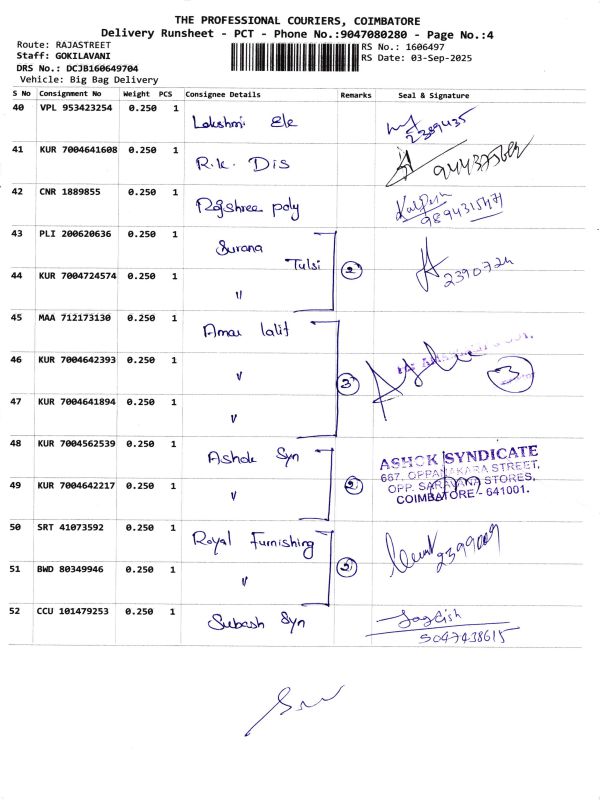 THE PROFESSIONAL COURIERS, COIMBATORE
Delivery Runsheet - PCT - Phone No.:9047080280 - Page No.:4
Route: RAJASTREET
RS No.: 1606497
Staff: GOKILAVANI
RS Date: 03-Sep-2025
DRS No.: DCJB160649704
Vehicle: Big Bag Delivery
S No Consignment No Weight PCS Consignee Details Remarks Seal & Signature
40 VPL 953423254 0.250 1 Lakshmi Ele 2389435
41 KUR 7004641608 0.250 1 R.K. Dis
42 CNR 1889855 0.250 1 Rajshree poly
43 PLI 200620636 0.250 1 Surana
Tulsi 2 2390724
44 KUR 7004724574 0.250 1 "
45 MAA 712173130 0.250 1 Amar lalit
46 KUR 7004642393 0.250 1 " 3 3
47 KUR 7004641894 0.250 1 "
48 KUR 7004562539 0.250 1 Ashok Syn
ASHOK SYNDICATE
667, OPPANAKARA STREET,
OPP. SARAVANA STORES,
COIMBATORE - 641001.
49 KUR 7004642217 0.250 1 " 2
50 SRT 41073592 0.250 1 Royal Furnishing 2399009
51 BWD 80349946 0.250 1 " 2
52 CCU 101479253 0.250 1 Subash Syn Jagdish
5047438615